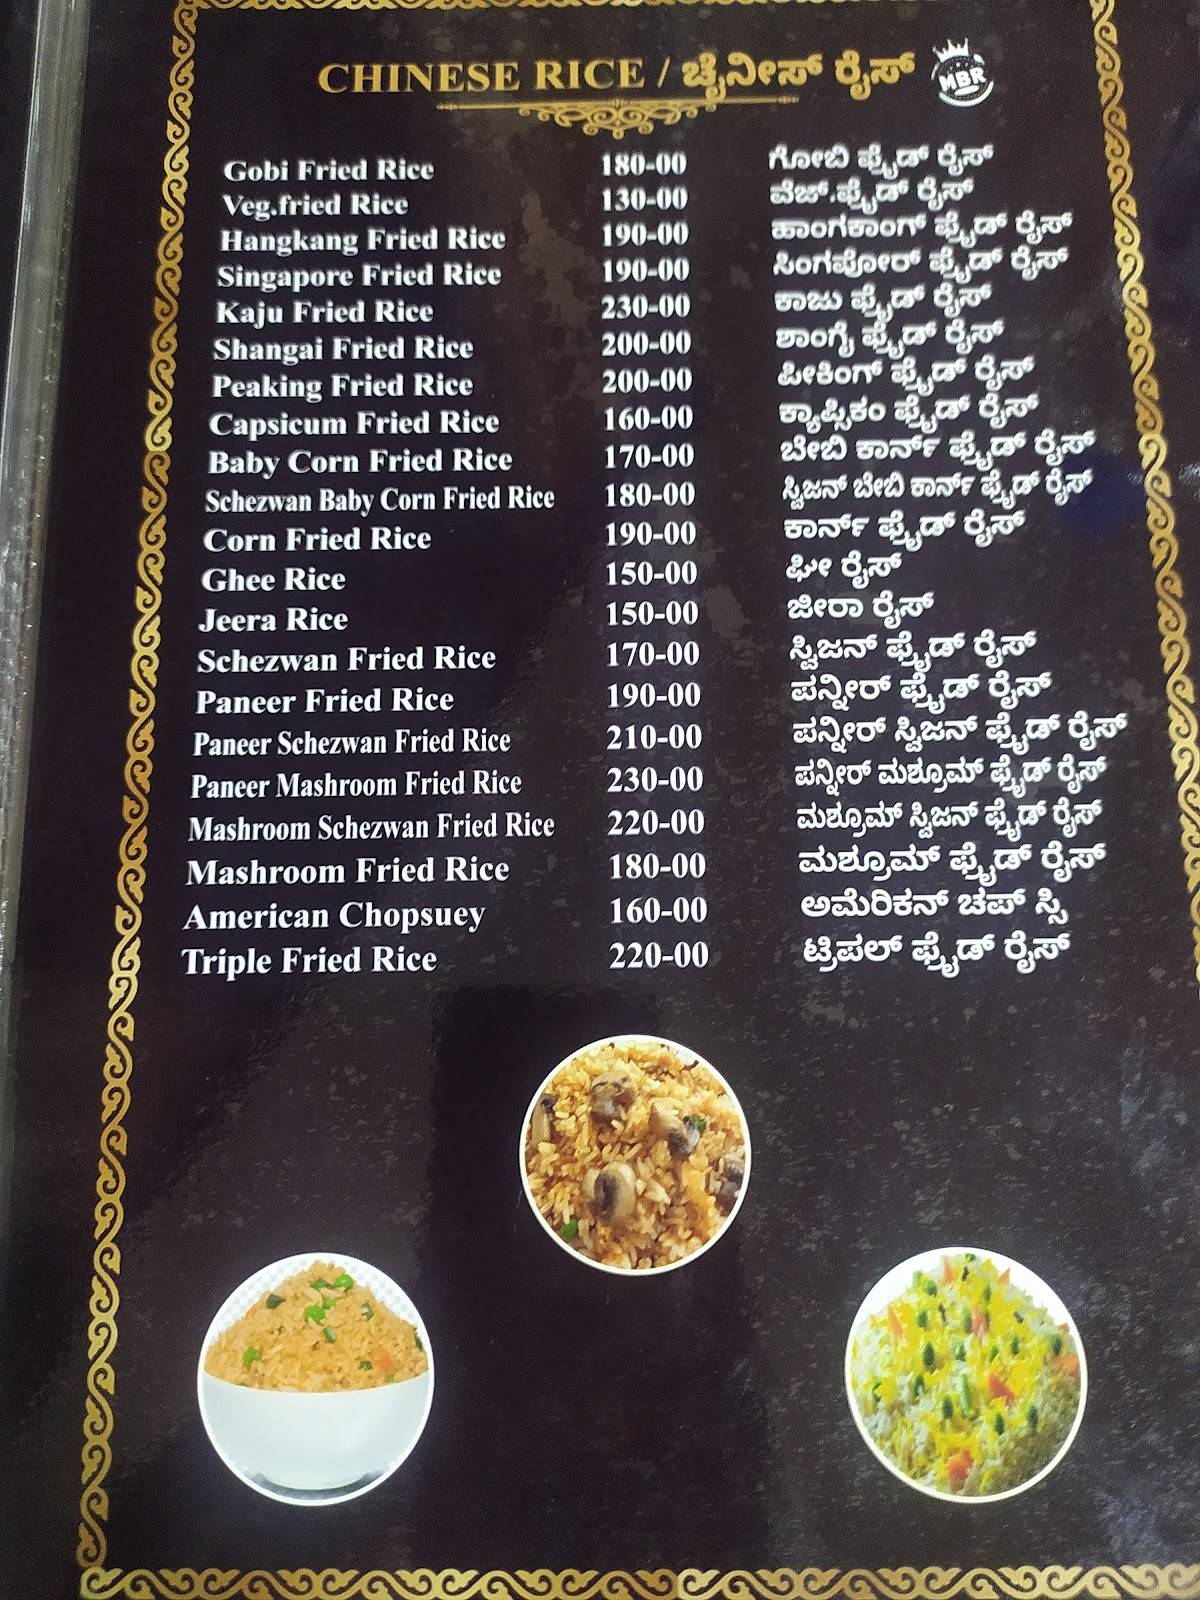 CHINESE RICE / ಚೈನೀಸ್ ರೈಸ್ MBR
Gobi Fried Rice 180-00 ಗೋಬಿ ಫ್ರೈಡ್ ರೈಸ್
Veg.fried Rice 130-00 ವೆಜ್.ಫ್ರೈಡ್ ರೈಸ್
Hangkang Fried Rice 190-00 ಹಾಂಗಕಾಂಗ್ ಫ್ರೈಡ್ ರೈಸ್
Singapore Fried Rice 190-00 ಸಿಂಗಪೋರ್ ಫ್ರೈಡ್ ರೈಸ್
Kaju Fried Rice 230-00 ಕಾಜು ಫ್ರೈಡ್ ರೈಸ್
Shangai Fried Rice 200-00 ಶಾಂಗೈ ಫ್ರೈಡ್ ರೈಸ್
Peaking Fried Rice 200-00 ಪೀಕಿಂಗ್ ಫ್ರೈಡ್ ರೈಸ್
Capsicum Fried Rice 160-00 ಕ್ಯಾಪ್ಸಿಕಂ ಫ್ರೈಡ್ ರೈಸ್
Baby Corn Fried Rice 170-00 ಬೇಬಿ ಕಾರ್ನ್ ಫ್ರೈಡ್ ರೈಸ್
Schezwan Baby Corn Fried Rice 180-00 ಸ್ವಿಜನ್ ಬೇಬಿ ಕಾರ್ನ್ ಫ್ರೈಡ್ ರೈಸ್
Corn Fried Rice 190-00 ಕಾರ್ನ್ ಫ್ರೈಡ್ ರೈಸ್
Ghee Rice 150-00 ಘೀ ರೈಸ್
Jeera Rice 150-00 ಜೀರಾ ರೈಸ್
Schezwan Fried Rice 170-00 ಸ್ವಿಜನ್ ಫ್ರೈಡ್ ರೈಸ್
Paneer Fried Rice 190-00 ಪನ್ನೀರ್ ಫ್ರೈಡ್ ರೈಸ್
Paneer Schezwan Fried Rice 210-00 ಪನ್ನೀರ್ ಸ್ವಿಜನ್ ಫ್ರೈಡ್ ರೈಸ್
Paneer Mashroom Fried Rice 230-00 ಪನ್ನೀರ್ ಮಶ್ರೂಮ್ ಫ್ರೈಡ್ ರೈಸ್
Mashroom Schezwan Fried Rice 220-00 ಮಶ್ರೂಮ್ ಸ್ವಿಜನ್ ಫ್ರೈಡ್ ರೈಸ್
Mashroom Fried Rice 180-00 ಮಶ್ರೂಮ್ ಫ್ರೈಡ್ ರೈಸ್
American Chopsuey 160-00 ಅಮೆರಿಕನ್ ಚಪ್ ಸ್ಸಿ
Triple Fried Rice 220-00 ಟ್ರಿಪಲ್ ಫ್ರೈಡ್ ರೈಸ್